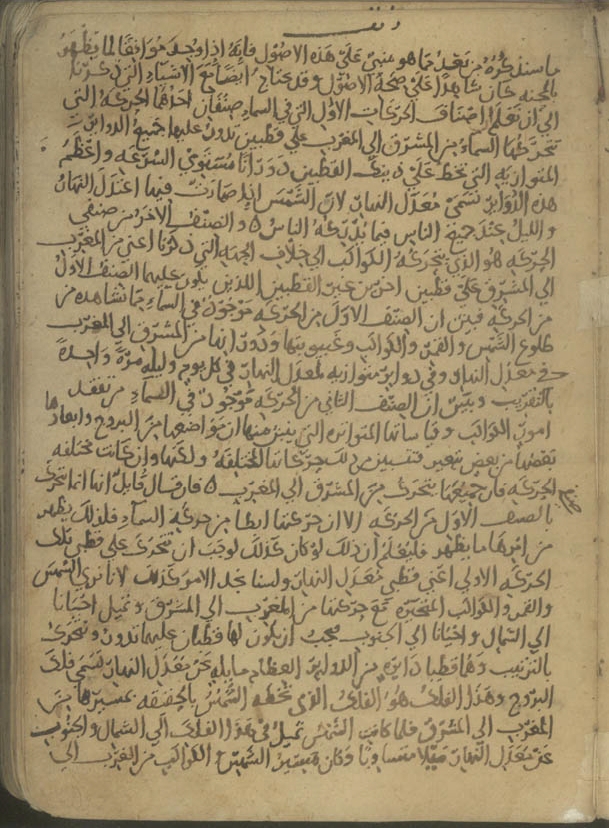 ما سنذكره من بعد مما هو مبني على هذه الاصول فانه اذا وجد موافقا لما يظهر
بالمحنه كان شاهدا على صحة الاصول وقد يحتاج ايضا مع الاشياء التي ذكرنا
الى ان نعلم اصناف الحركات الاول التي في السماء صنفان احدهما الحركة التي
تتحرك بها السماء من المشرق الى المغرب على قطبين تدور عليهما جميع الدوائر
المتوازيه التي تخط على ذينك القطبين دورانا مستوي السرعه واعظم
هذه الدوائر تسمى معدل النهار لان الشمس اذا صارت فيها اعتدل النهار
والليل عند جميع الناس فيما يدركه الناس ه والصنف الاخر من صنفي
الحركه هو الذي تتحركه الكواكب الى خلاف الجهه التي ذكرنا اعني من المغرب
الى المشرق على قطبين اخرين غير القطبين اللذين تكون عليهما الصنف الاول
من الحركه فبين ان الصنف الاول من الحركه موجود في السماء مما نشاهده من
طلوع الشمس والقمر والكواكب وغيبوبتها ودورانها من المشرق الى المغرب
في معدل النهار وفي دوائر متوازيه لمعدل النهار في كل يوم وليله مرة واحدة
بالتقريب وتبين ان الصنف الثاني من الحركه موجود في السماء من تفقد
امور الكواكب وقياساتها المتواتره التي يتبين منها ان مواضعها من البروج وابعادها
بعضها من بعض تتغير فتبين من ذلك حركاتها المختلفه ولكنها وان كانت مختلفه
الحركه فان جميعها تتحرك من المشرق الى المغرب ه فان قال قائل انها انما تتحرك
بالصنف الاول من الحركه الا ان حركتها ابطا من حركة السماء فلذلك يظهر
من امرها ما يظهر فليعلم ان ذلك لو كان كذلك لوجب ان تتحرك على قطبي تلك
الحركه الاولى اعني قطبي معدل النهار ولسنا نجد الامر كذلك لانا نرى الشمس
والقمر والكواكب المتحيره مع حركتها من المغرب الى المشرق وتميل احيانا
الى الشمال واحيانا الى الجنوب فيجب ان يكون لها قطبان عليهما تدور وتتحرك
بالترتيب وهما قطبا دائره من الدوائر العظام مايله عن معدل النهار تسمى فلك
البروج وهذا الفلك هو الفلك الذي تخطه الشمس بالحقيقه بمسيرها من
المغرب الى المشرق فلما كانت الشمس تميل في هذا الفلك الى الشمال والجنوب
عن معدل النهار ميلا متساويا وكان مسير الشمس الكواكب من المغرب الى